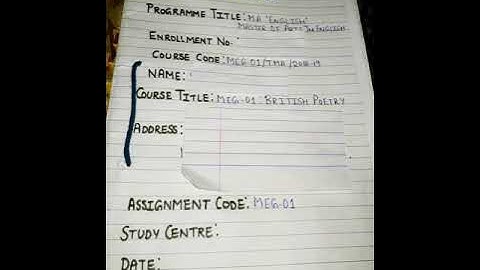 PROGRAMME TITLE: MA "ENGLISH"
MASTER OF ARTS IN ENGLISH
ENROLLMENT NO.
COURSE CODE: MEG-01/TMA/2018-19
NAME:
COURSE TITLE: MEG-01 BRITISH POETRY
ADDRESS:
ASSIGNMENT CODE: MEG-01
STUDY CENTRE:
DATE: